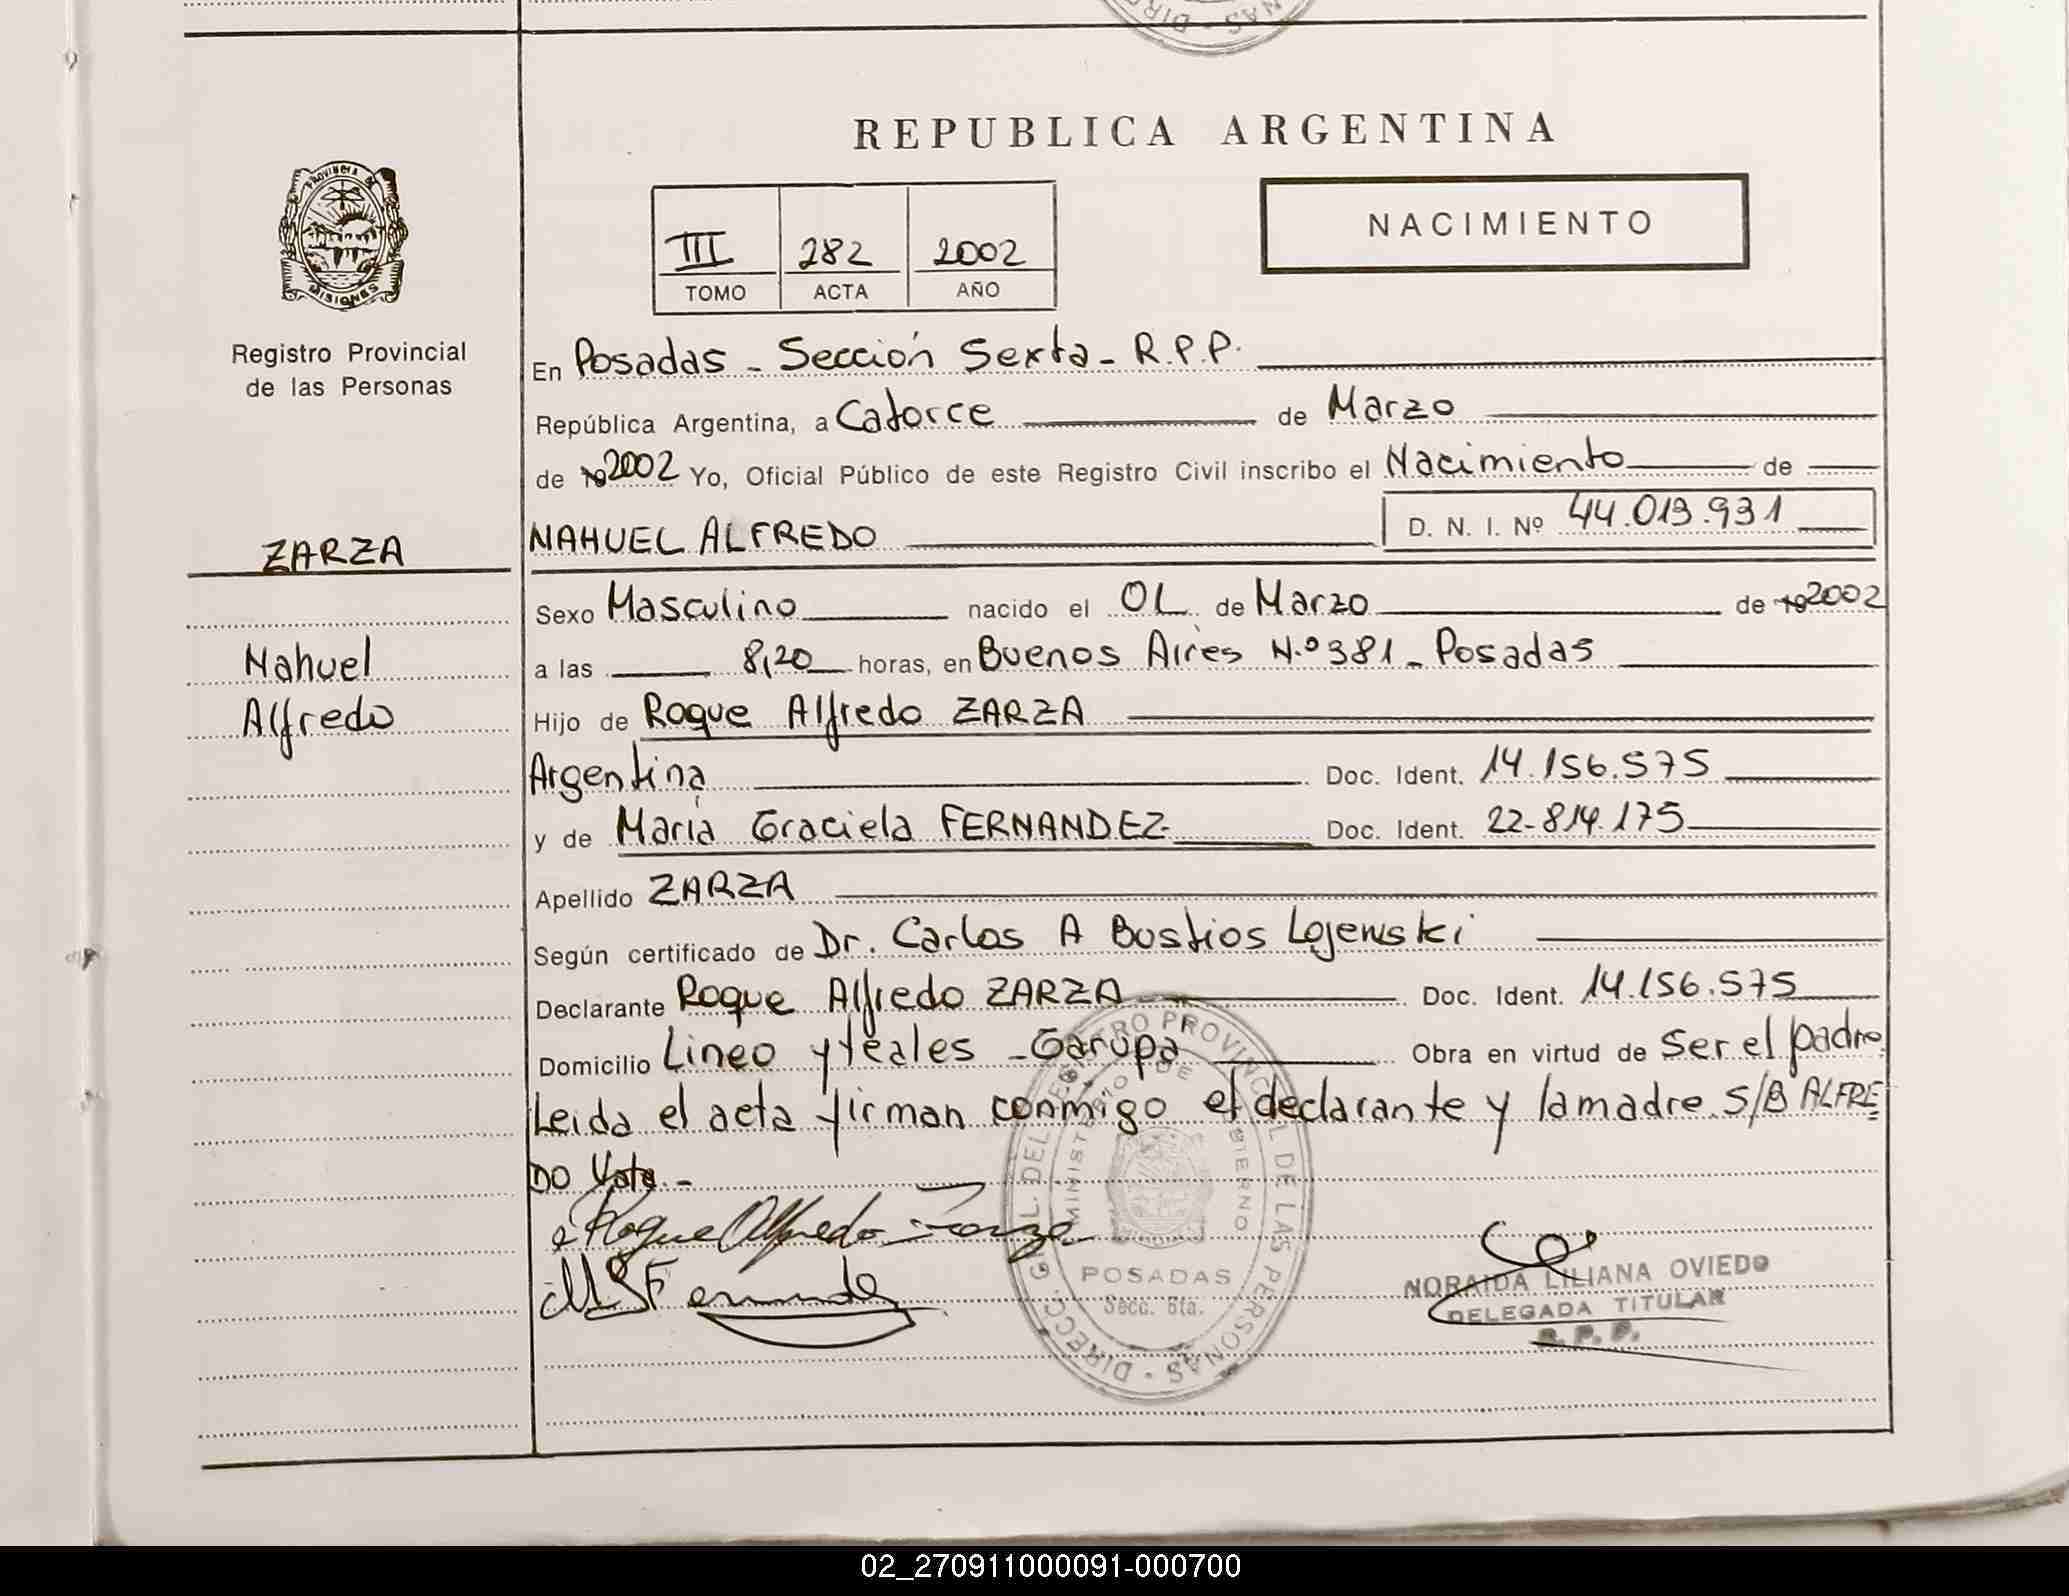 REPUBLICA ARGENTINA
PROVINCIA DE
MISIONES
III 282 2002
TOMO ACTA AÑO
NACIMIENTO
Registro Provincial
de las Personas
En Posadas - Sección Sexta - R.P.P.
República Argentina, a Catorce de Marzo
de 19 2002 Yo, Oficial Público de este Registro Civil inscribo el Nacimiento de
ZARZA
NAHUEL ALFREDO D. N. I. Nº 44.013.931
Sexo Masculino nacido el 01 de Marzo de 19 2002
Nahuel
a las 8,20 horas, en Buenos Aires N.º 381 - Posadas
Alfredo
Hijo de Roque Alfredo ZARZA
Argentina Doc. Ident. 14.156.575
y de María Graciela FERNANDEZ Doc. Ident. 22-814.175
Apellido ZARZA
Según certificado de Dr. Carlos A Bustios Lojewski
Declarante Roque Alfredo ZARZA Doc. Ident. 14.156.575
Domicilio Lineo y Teales - Garupa Obra en virtud de Ser el padre
Leida el acta firman conmigo el declarante y la madre. S/B ALFRE
DO Vale. -
Roque Alfredo Zarza
Fernandez
DIRECC. GRAL. DEL REGISTRO PROVINCIAL DE LAS PERSONAS
MINISTERIO DE GOBIERNO
POSADAS
Secc. 6ta.
NORAIDA LILIANA OVIEDO
DELEGADA TITULAR
R. P. P.
02_270911000091-000700